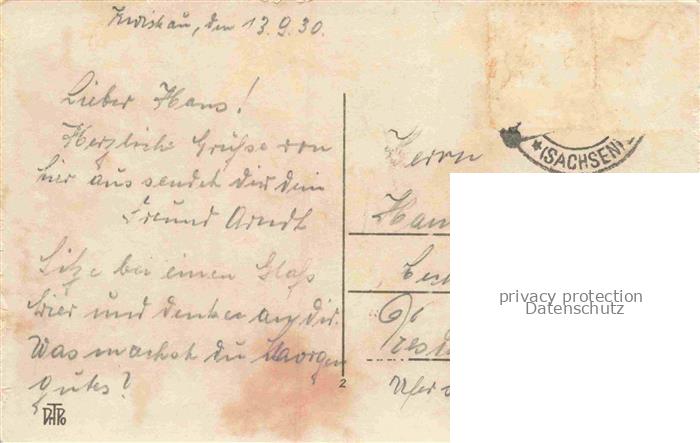 Zwickau, den 13.9.30.
Lieber Hans!
Herzliche Grüße von
hier aus sendet dir dein
Freund Arndt
Sitze bei einen Glaß
Bier und denke an dir.
Was machst du Morgen
gutes?
Herrn
Han
Dresd
2
*(SACHSEN)
privacy protection
Datenschutz